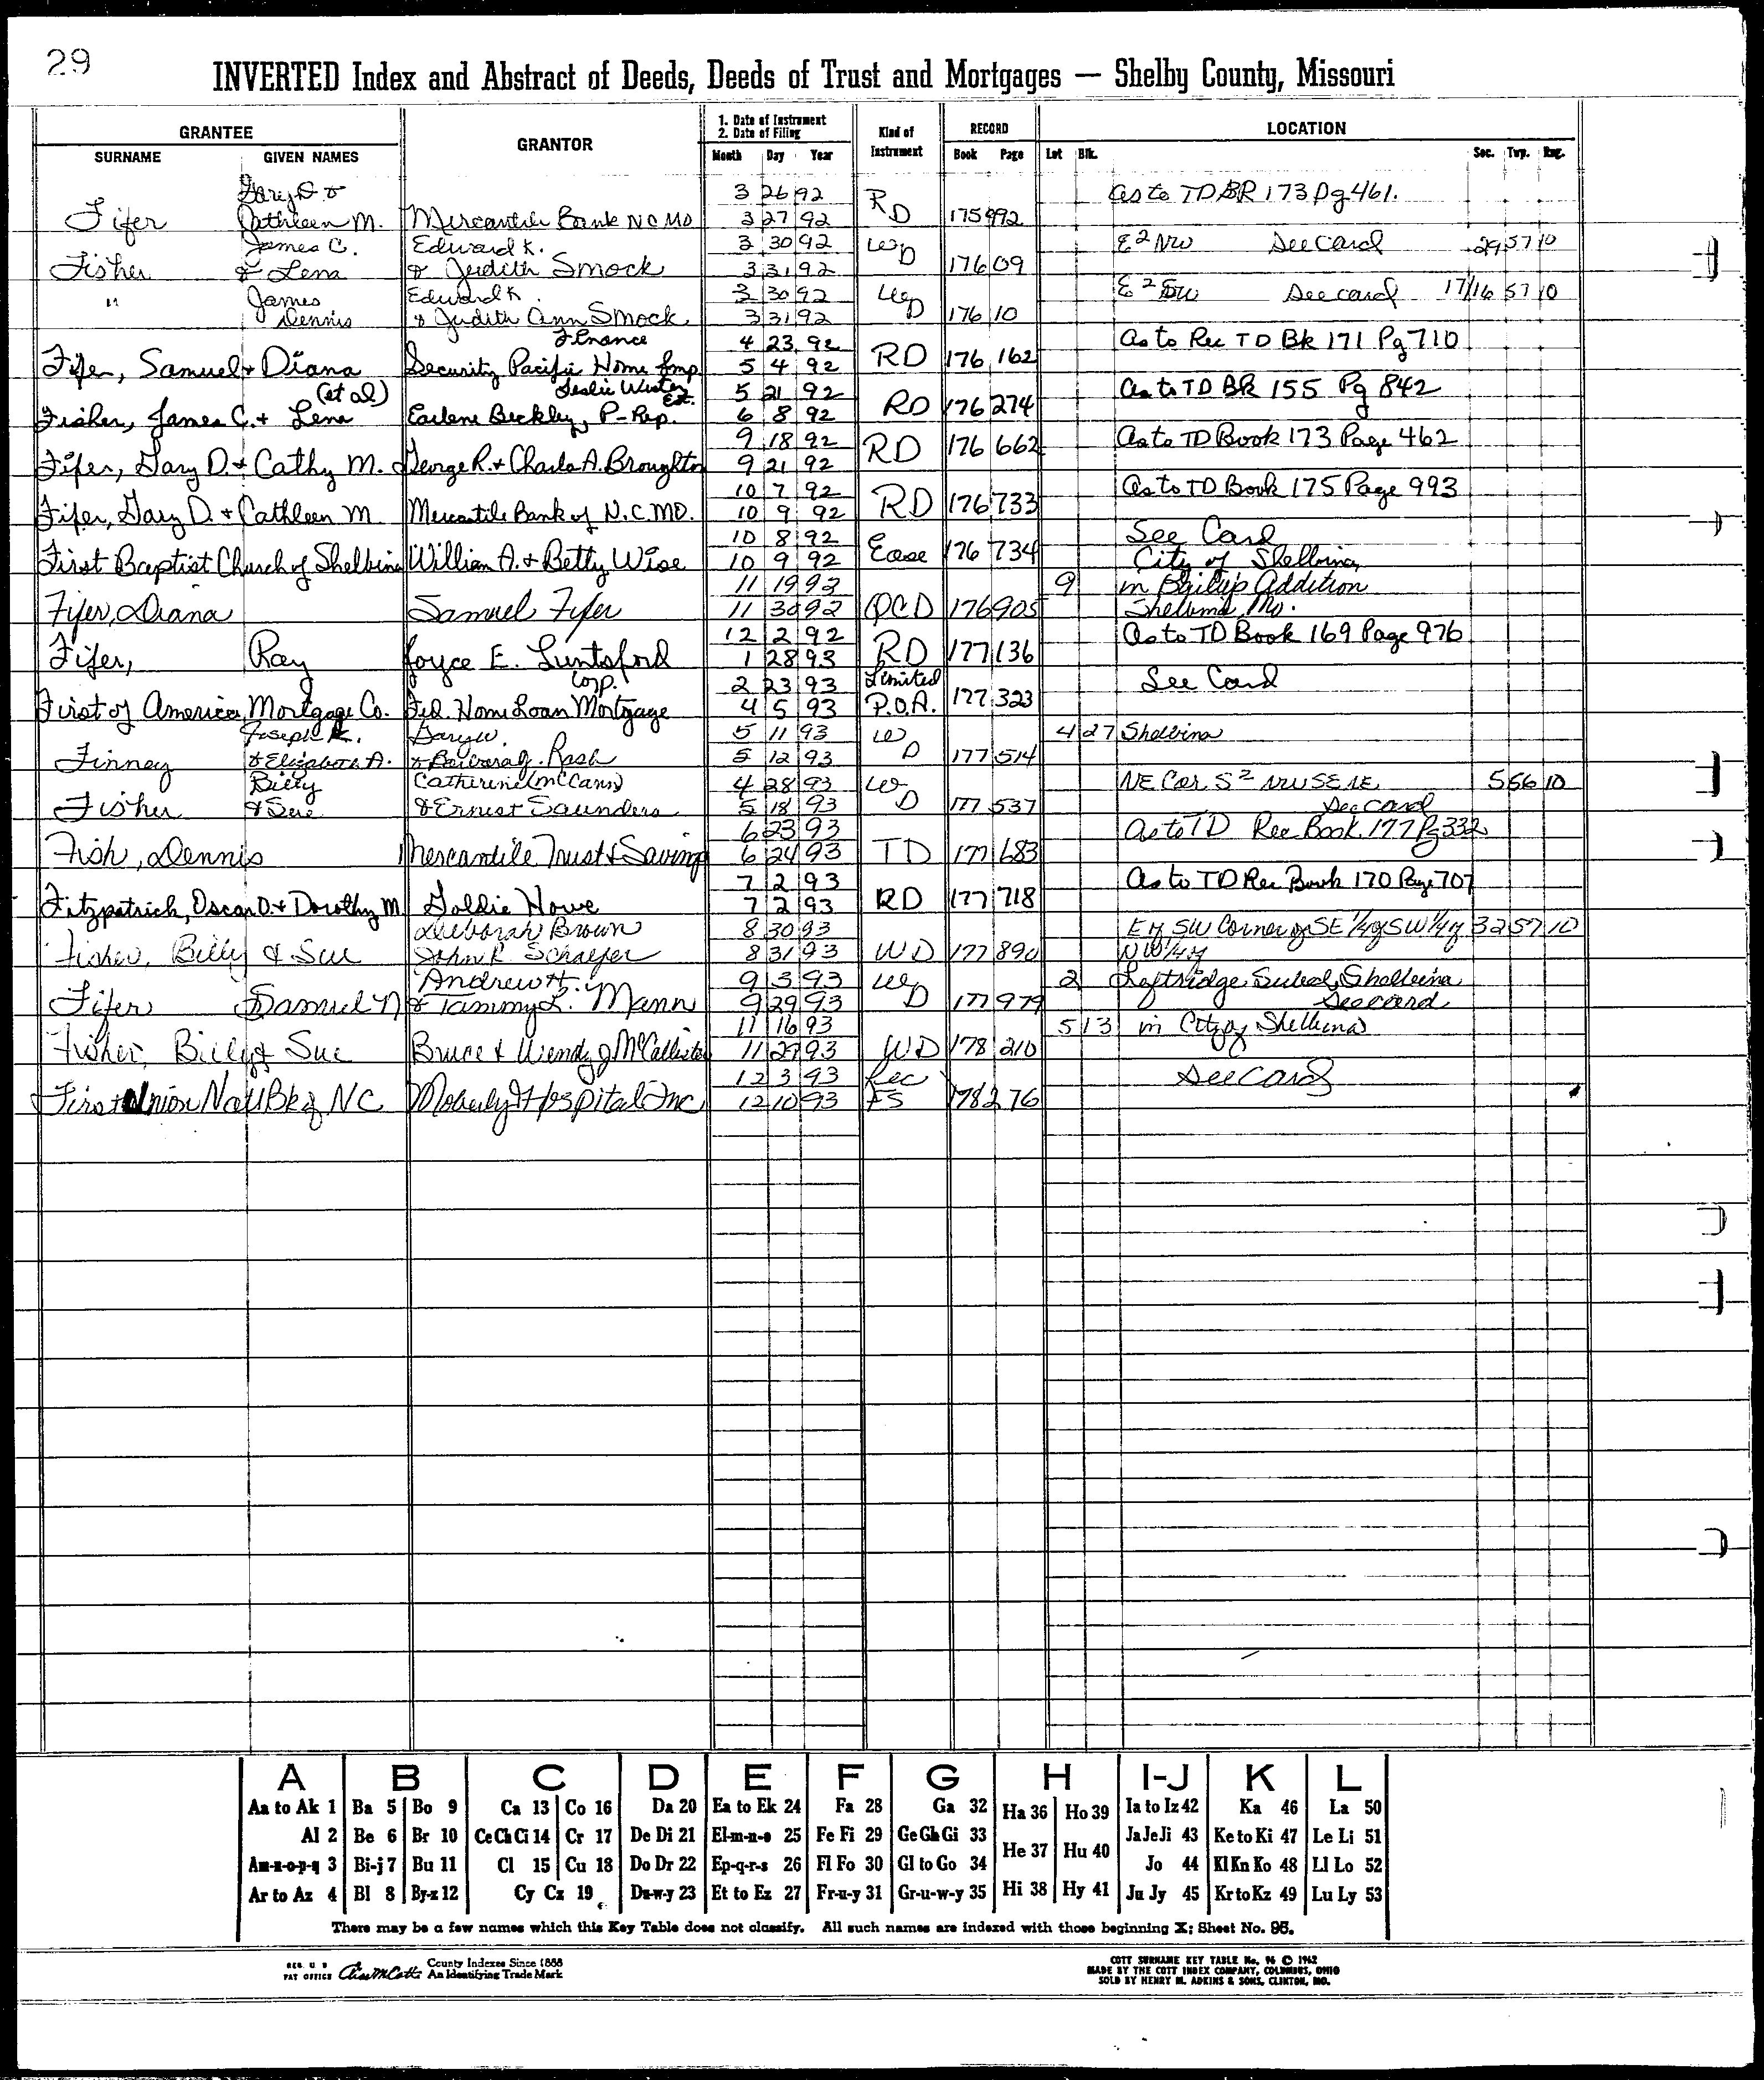 29
INVERTED Index and Abstract of Deeds, Deeds of Trust and Mortgages — Shelby County, Missouri
GRANTEE GRANTOR 1. Date of Instrument 2. Date of Filing Kind of Instrument RECORD LOCATION
SURNAME GIVEN NAMES Month Day Year Book Page Lot Blk. Sec. Twp. Rng.
Gary D. & 3 26 92 RD as to TD BR 173 Pg 461.
Fifer Cathleen M. Mercantile Bank N C MO 3 27 92 175 992
James C. Edward K. 3 30 92 WD E2 NW See Card 29 57 10
Fisher & Lena & Judith Smock 3 31 92 176 09
" James Edward K. 3 30 92 WD E2 SW See card 17/16 57 10
Dennis & Judith Ann Smock 3 31 92 176 10
Finance 4 23 92 RD As to Rec TD Bk 171 Pg 710
Fifer, Samuel & Diana Security Pacific Home Imp. 5 4 92 176 162
(et al) Leslie Est. 5 21 92 RD As to TD BR 155 Pg 842
Fisher, James C. & Lena Earlene Beckley, P-Rep. 6 8 92 176 274
9 18 92 RD 176 662 As to TD Book 173 Page 462
Fifer, Gary D. & Cathy M. George R. & Charla A. Broughton 9 21 92
10 7 92 RD 176 733 As to TD Book 175 Page 993
Fifer, Gary D. & Cathleen M Mercantile Bank of N.C. MO. 10 9 92
10 8 92 Ease 176 734 See Card
First Baptist Church of Shelbina William A. & Betty Wise 10 9 92 City of Shelbina
11 19 92 9 in Addition
Fifer, Diana Samuel Fifer 11 30 92 QCD 176 905 Mo.
12 2 92 RD 177 136 As to TD Book 169 Page 976
Fifer, Ray Joyce E. Luntsford 1 28 93
Corp. 2 23 93 Limited See Card
First of America Mortgage Co. Fed. Home Loan Mortgage 4 5 93 P.O.A. 177 323
Joseph K. Gary W. 5 11 93 WD 4 27 Shelbina
Finney & Elizabeth A. & Barbara J. Rash 5 12 93 177 514
Billy Catherine (McCann) 4 28 93 WD NE Cor S2 NW SE NE 5 56 10
Fisher & Sue & Ernest Saunders 5 18 93 177 537 See Card
6 23 93 As to TD Rec Book 177 Pg 332
Fish, Dennis Mercantile Trust & Saving 6 24 93 TD 177 683
7 2 93 As to TD Rec Book 170 Page 707
Fitzpatrick, Oscar D. & Dorothy M Goldie Howe 7 2 93 RD 177 718
Deborah Brown 8 30 93 SW Corner of SE 1/4 of SW 1/4 of 32 57 10
Fisher, Billy & Sue John R. Schaefer 8 31 93 WD 177 890 NW 1/4
Andrew H. 9 3 93 WD 2 Leftridge Shelbina
Fifer Samuel N & Tammy L. Mann 9 29 93 177 979 See card
11 16 93 5 13 in City of Shelbina
Fisher, Billy & Sue Bruce & Wendy J McCallister 11 29 93 WD 178 210
12 3 93 Rec See Card
First Union Natl Bk of NC Moberly Hospital Inc 12 10 93 FS 178 276
A B C D E F G H I-J K L
Aa to Ak 1 Ba 5 Bo 9 Ca 13 Co 16 Da 20 Ea to Ek 24 Fa 28 Ga 32 Ha 36 Ho 39 Ia to Iz 42 Ka 46 La 50
Al 2 Be 6 Br 10 Ce Ch Ci 14 Cr 17 De Di 21 El-m-n-o 25 Fe Fi 29 Ge Gh Gi 33 He 37 Hu 40 Ja Je Ji 43 Ke to Ki 47 Le Li 51
Am-n-o-p-q 3 Bi-j 7 Bu 11 Cl 15 Cu 18 Do Dr 22 Ep-q-r-s 26 Fl Fo 30 Gl to Go 34 Jo 44 Kl Kn Ko 48 Ll Lo 52
Ar to Az 4 Bl 8 By-z 12 Cy Cz 19 Du-w-y 23 Et to Ez 27 Fr-u-y 31 Gr-u-w-y 35 Hi 38 Hy 41 Ju Jy 45 Kr to Kz 49 Lu Ly 53
There may be a few names which this Key Table does not classify. All such names are indexed with those beginning X; Sheet No. 96.
REG. U S PAT OFFICE County Indexes Since 1888 An Identifying Trade Mark
COTT SURNAME KEY TABLE No. 96 © 1962
MADE BY THE COTT INDEX COMPANY, COLUMBUS, OHIO
SOLD BY HENRY M. ADKINS & SONS, CLINTON, MO.